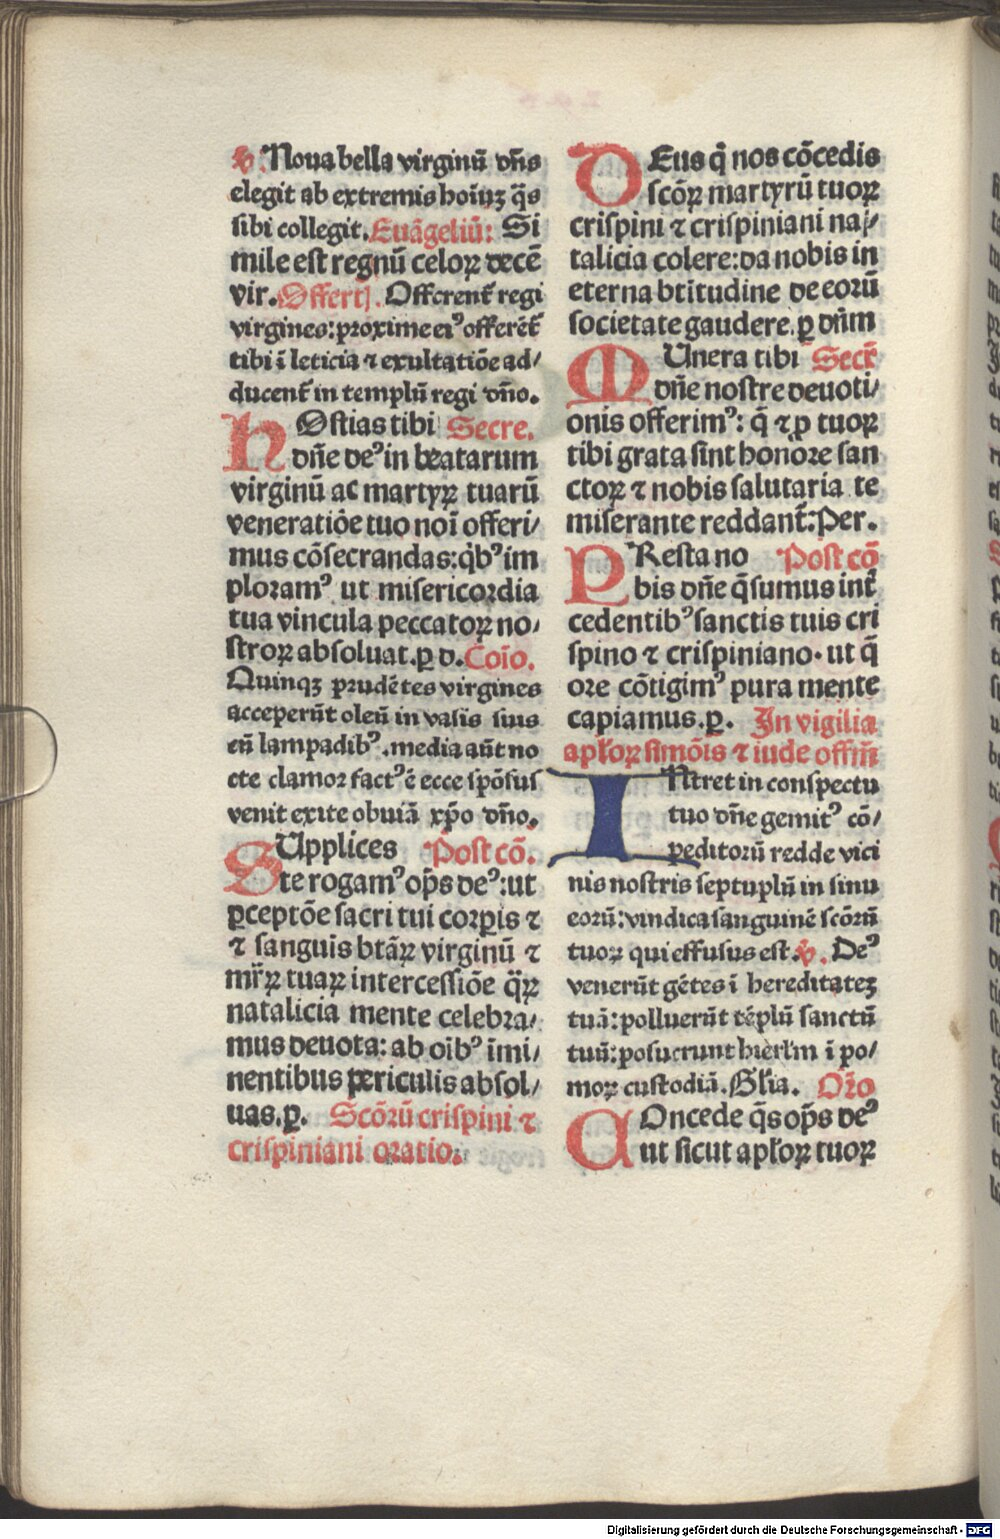 ℣. Noua bella virginū dn̄s
elegit ab extremis hoīuꝫ q̄s
sibi collegit. Euāgeliū: Si
mile est regnū celoꝝ decē
vir. Offertʒ. Offerent᷑ regi
virgines: proxime eiꝰ offerēt᷑
tibi ī leticia ⁊ exultatiōe ad/
ducent᷑ in templū regi dn̄o.
HOstias tibi Secre.
dn̄e deꝰ in beatarum
virginū ac martyꝝ tuarū
veneratiōe tuo noī offeri/
mus cōsecrandas: q̇bꝰ im
ploramꝰ ut misericordia
tua vincula peccatoꝝ no/
stroꝝ absoluat. ꝑ d. Cōio.
Quinqꝫ prudētes virgines
acceperūt oleū in vasis suis
cū lampadibꝰ. media aūt no
cte clamor factꝰ ē ecce spōsus
venit exite obuiā xp̄o dn̄o.
SUpplices Post cō.
te rogamꝰ op̄s deꝰ: ut
ꝑceptōe sacri tui corꝑis ⁊
⁊ sanguīs btāꝝ virginū ⁊
mr̄ꝝ tuaꝝ intercessiōe q̄ꝝ
natalicia mente celebra/
mus deuota: ab oībꝰ īmi/
nentibus periculis absol/
uas. ꝑ. Scōrū crispini ⁊
crispiniani oratio.
DEus q̄ nos cōcedis
scōꝝ martyrū tuoꝝ
crispini ⁊ crispiniani na/
talicia colere: da nobis in
eterna btītudine de eorū
societate gaudere. ꝑ dn̄m
MUnera tibi Secr̄
dn̄e nostre deuoti/
onis offerimꝰ: q̄ ⁊ ꝓ tuoꝝ
tibi grata sint honore san
ctoꝝ ⁊ nobis salutaria te
miserante reddant᷑: Per.
PResta no Post cō
bis dn̄e q̄sumus int᷑
cedentibꝰ sanctis tuis cri
spino ⁊ crispiniano. ut q̄
ore cōtigimꝰ pura mente
capiamus. ꝑ. In vigilia
apl̄oꝝ simōis ⁊ iude offm̄
INtret in conspectu
tuo dn̄e gemitꝰ cō/
peditorū redde vici
nis nostris septuplū in sinu
eorū: vindica sanguinē scōrū
tuoꝝ qui effusus est. ℣. Deꝰ
venerūt gētes ī hereditateꝫ
tuā: polluerūt tēplū sanctū
tuū: posuerunt hierl̄m ī po/
moꝝ custodiā. Gl̄ia. Or̄o
COncede q̄s op̄s deꝰ
ut sicut apl̄oꝝ tuoꝝ
Digitalisierung gefördert durch die Deutsche Forschungsgemeinschaft - DFG